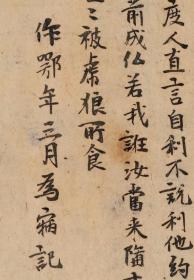 度人直言自利不說利他約
前成仏若我誑汝當来隨
三被虎狼所食
作鄂年三月為寤記